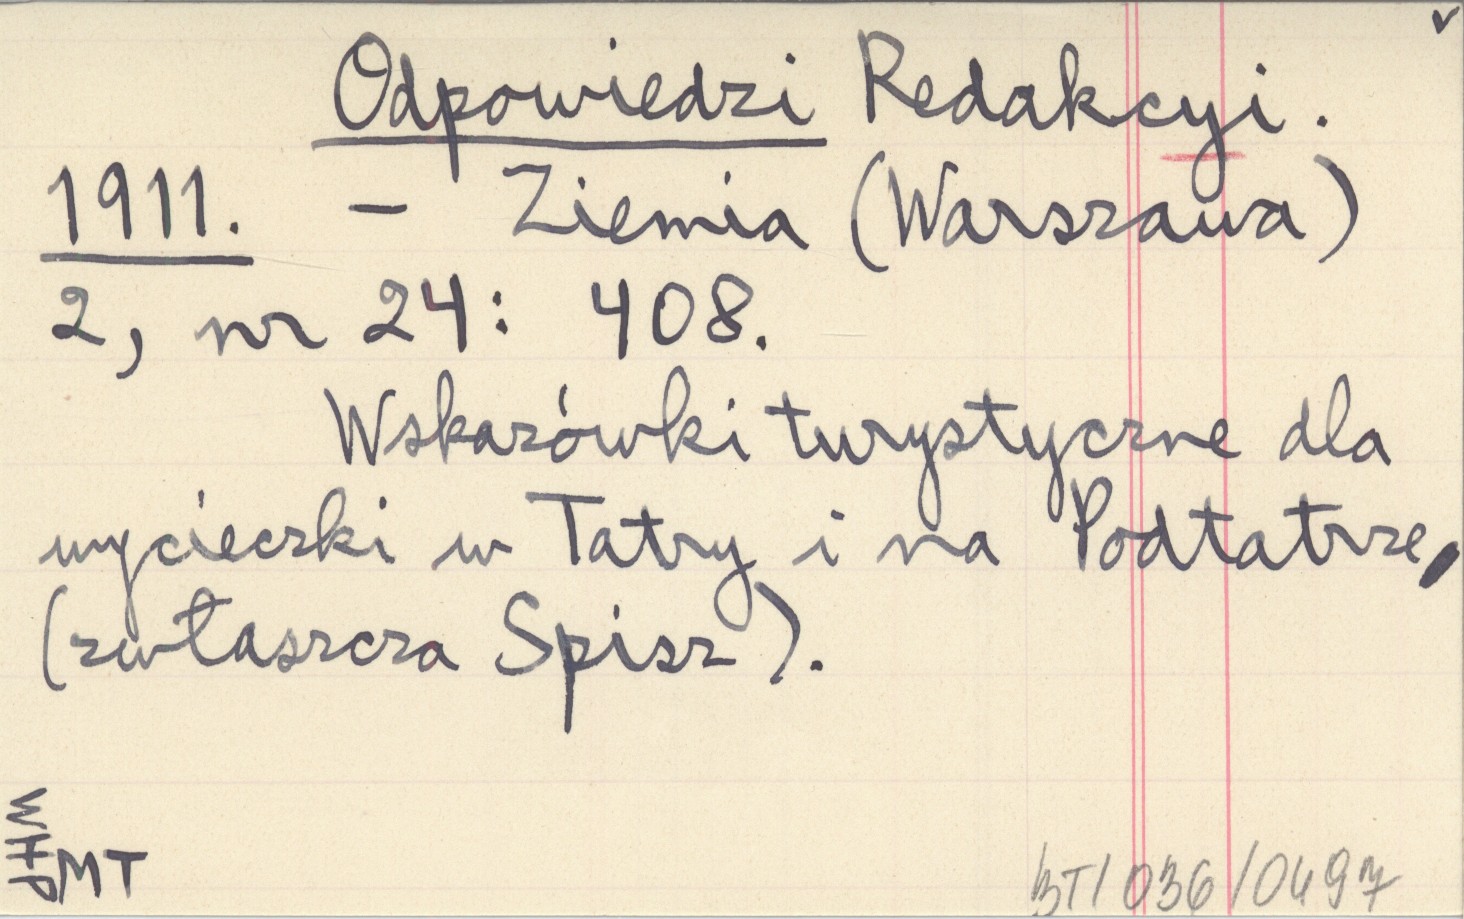 v
Odpowiedzi Redakcyi.
1911. – Ziemia (Warszawa)
2, nr 24: 408.
Wskazówki turystyczne dla
wycieczki w Tatry i na Podtatrze,
(zwłaszcza Spisz).
WHP
MT
BT/036/0497